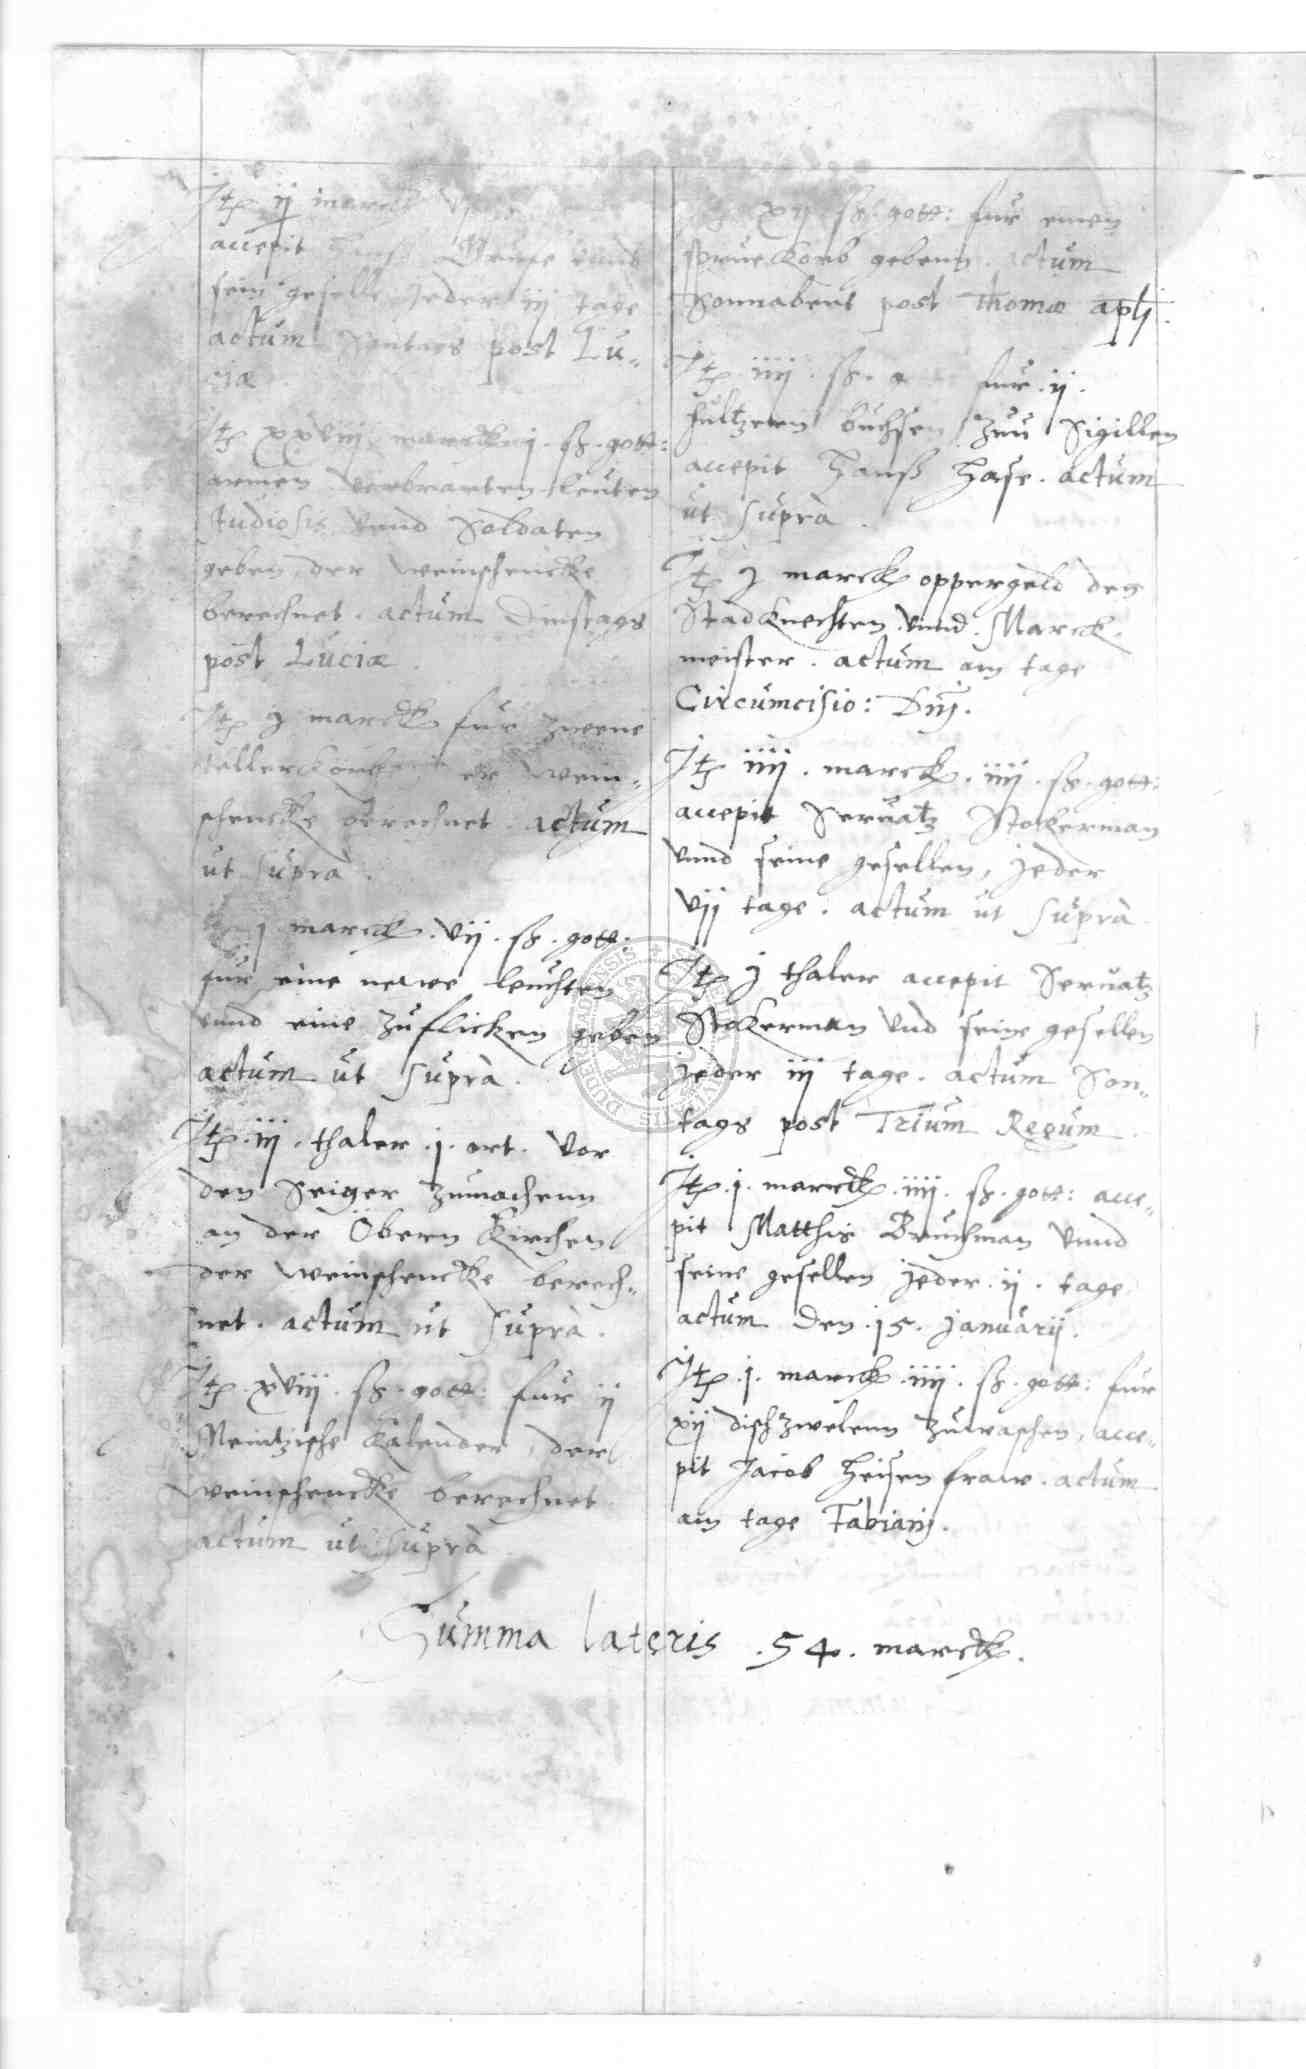 Itẹ ij marck
accepit Hanß Gruse vnnd
sein geselle jeder iij tage
actum Sontags post Lu„
ciæ
Itẹ xxviij marck j ß. gott:
armen verbranten leuten
studiosis vnnd Soldaten
geben, der weinschencke
berechnet. actum Dinstags
post Luciæ.
Itẹ j marck fur zweene
tellerkorbe, der wein„
schencke berechnet. actum
ut supra.
j marck. vij. ß. gott:
fur eine newe leuchten
vnnd eine zuflicken geben
actum ut supra.
Itẹ. iij. thaler. j. ort. vor
den Seiger zumachenn
an der Obern Kirchen
der weinschencke berech„
net. actum ut supra.
Itẹ. xviij. ß. gott: fur ij
Meintzische Kalender, der
weinschencke berechnet
actum ut supra
xij ß. gott: fur einen
korb gebenn. actum
Sonnabent post Thomæ apłi.
Itẹ. iiij. ß. g fur. ij.
hultzern buchsen zuu Sigillen
accepit Hanß Hase. actum
ut supra.
Itẹ j marck oppergeld den
Stadknechten vnnd Marck„
meister. actum am tage
Circumcisio: Dnj.
Itẹ iiij. marck. iiij. ß. gott:
accepit Seruatz Stokerman
vnnd seine gesellen, jeder
vij tage. actum ut supra
Itẹ j thaler accepit Seruatz
Stokerman vnd seine gesellen
jeder iij tage. actum Son„
tags post Trium Regum.
Itẹ. j. marck. iiij. ß. gott: acce„
pit Matthis Bruchman vnnd
seine gesellen jeder. ij. tage
actum den. 15. januarij.
Itẹ. j. marck. iiij. ß. gott: fur
xij dischzwelenn zuwaschen, acce„
pit Jacob Heisen fraw. actum
am tage Fabianj.
Summa lateris . 54. marck.